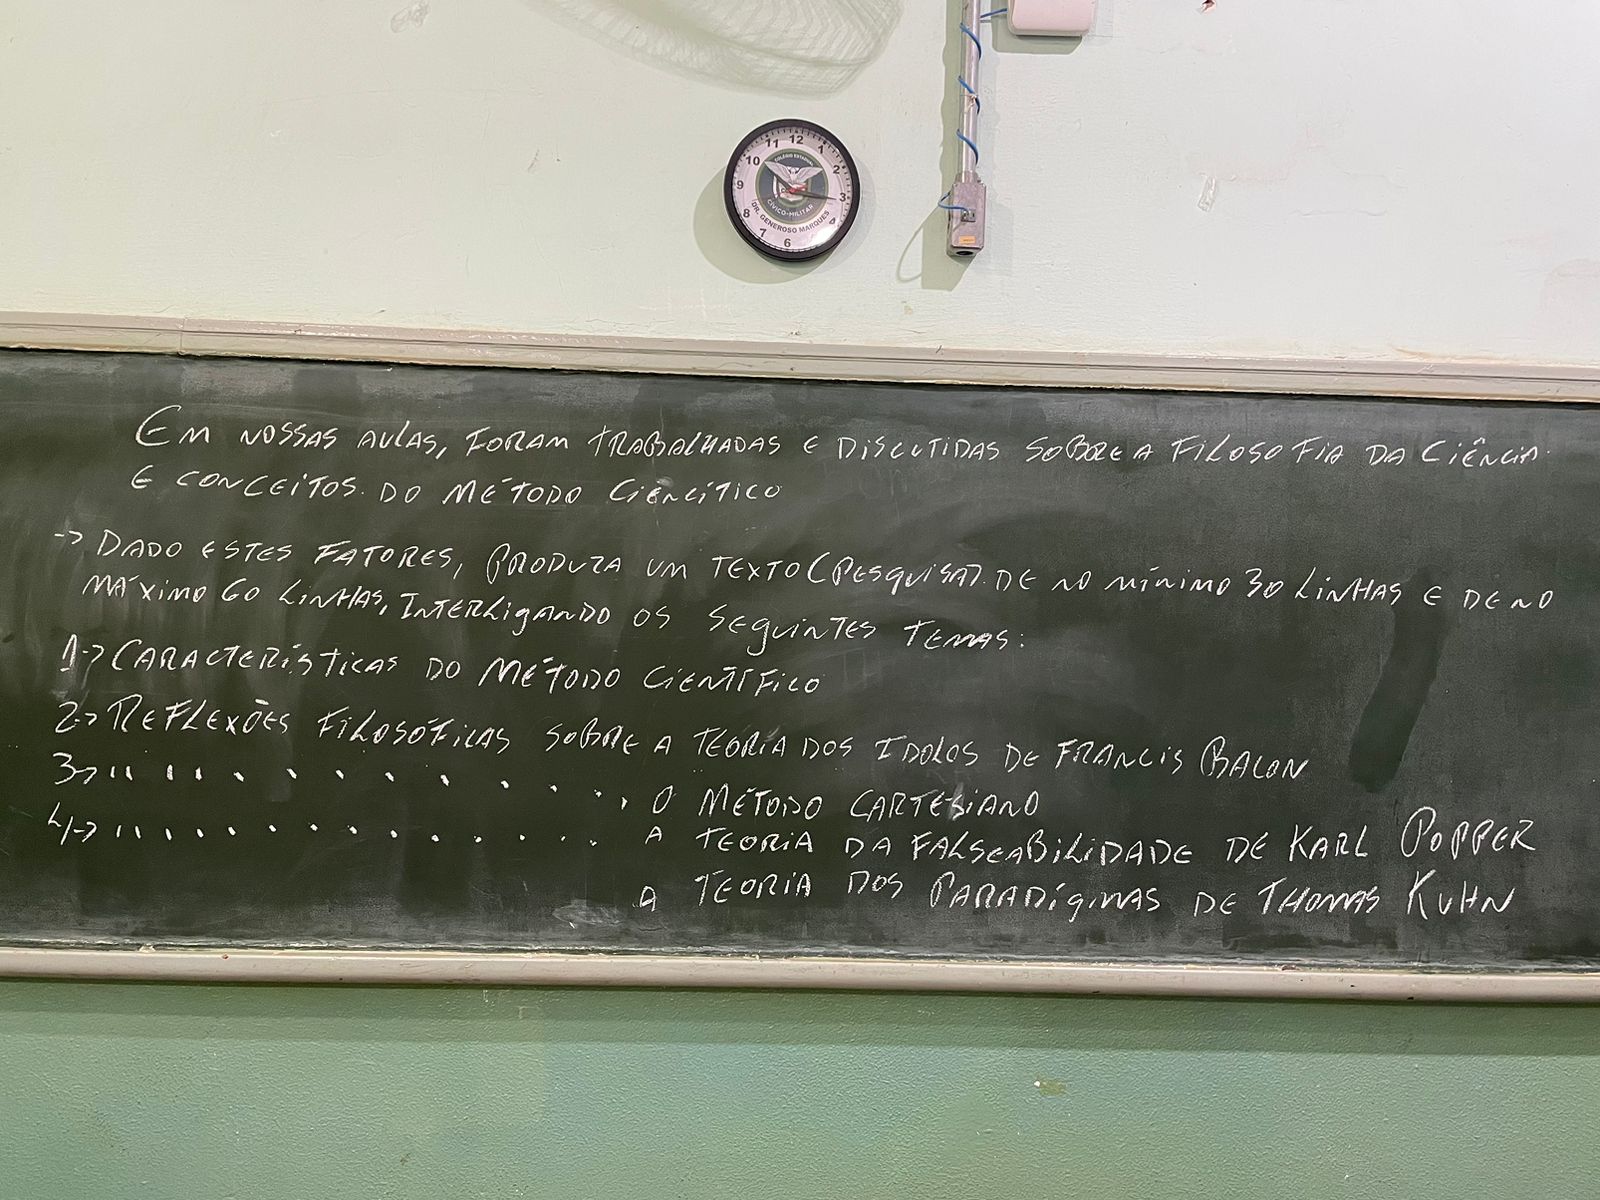 12
11
1
10
2
9
3
8
4
7
6
COLÉGIO ESTADUAL
CÍVICO-MILITAR
DR. GENEROSO MARQUES
EM NOSSAS AULAS, FORAM TRABALHADAS E DISCUTIDAS SOBRE A FILOSOFIA DA CIÊNCIA
E CONCEITOS DO MÉTODO CIENCÍTICO
-> DADO ESTES FATORES, PRODUZA UM TEXTO (PESQUISA) DE NO MÍNIMO 30 LINHAS E DE NO
MÁXIMO 60 LINHAS, INTERLIGANDO OS SEGUINTES TEMAS:
1-> CARACTERÍSTICAS DO MÉTODO CIENTÍFICO
2-> REFLEXÕES FILOSÓFICAS SOBRE A TEORIA DOS IDOLOS DE FRANCIS BACON
3-> '' '' . . . . . . . . . . O MÉTODO CARTESIANO
4-> '' '' . . . . . . . . . . A TEORIA DA FALSEABILIDADE DE KARL POPPER
A TEORIA DOS PARADÍGMAS DE THOMAS KUHN